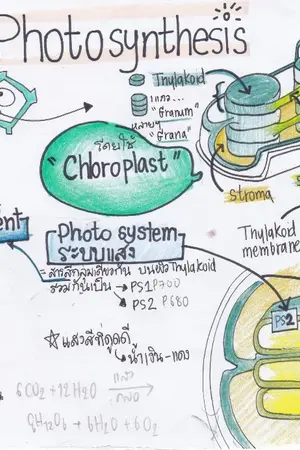 Photosynthesis
Thylakoid
1 แถว...
"Granum"
หลายๆ
"Grana"
โดยใช้
"Chloroplast"
Stroma
Thylakoid
membrane
ent
Photo system
ระบบแสง
= สารสีกลุ่มเดียวกัน บนผิว Thylakoid
รวมกันเป็น → PS1 P700
→ PS2 P680
PS2
☆ แสงสีที่ดูดดี
→ น้ำเงิน-แดง
6CO2 + 12H2O แสง
คลอ
C6H12O6 + 6H2O + 6O2